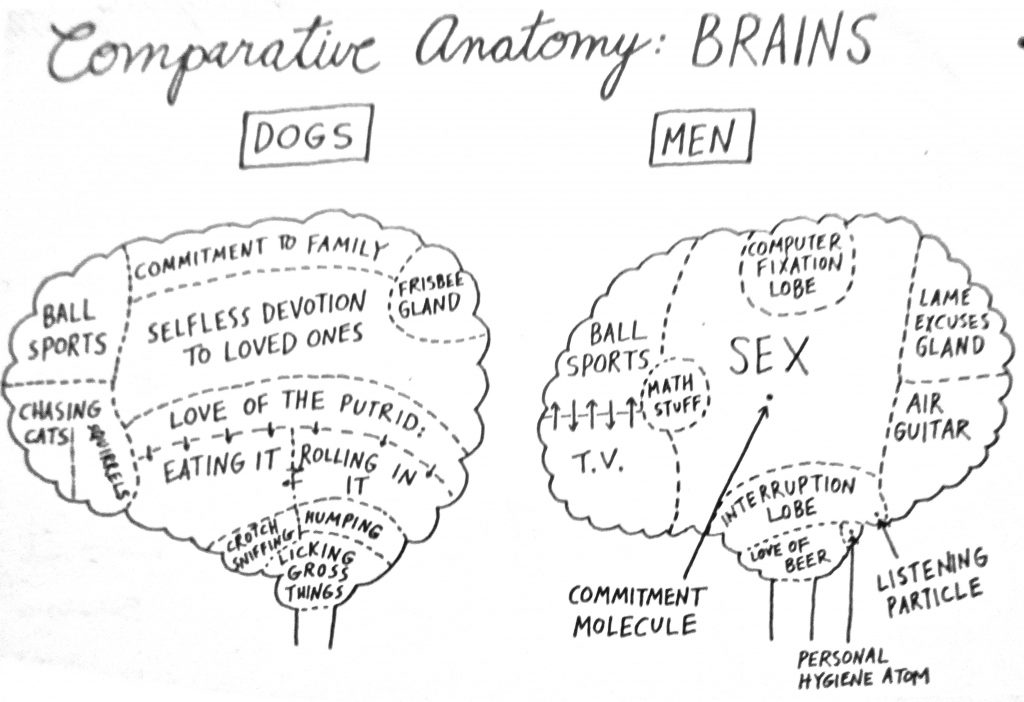 Comparative Anatomy: BRAINS
DOGS
BALL
SPORTS
COMMITMENT TO FAMILY
FRISBEE
GLAND
SELFLESS DEVOTION
TO LOVED ONES
CHASING
CATS
SQUIRRELS
LOVE OF THE PUTRID:
EATING IT
ROLLING IN
IT
CROTCH
SNIFFING
HUMPING
LICKING
GROSS
THINGS
MEN
COMPUTER
FIXATION
LOBE
BALL
SPORTS
MATH
STUFF
T.V.
SEX
LAME
EXCUSES
GLAND
AIR
GUITAR
INTERRUPTION
LOBE
LOVE OF
BEER
COMMITMENT
MOLECULE
LISTENING
PARTICLE
PERSONAL
HYGIENE ATOM